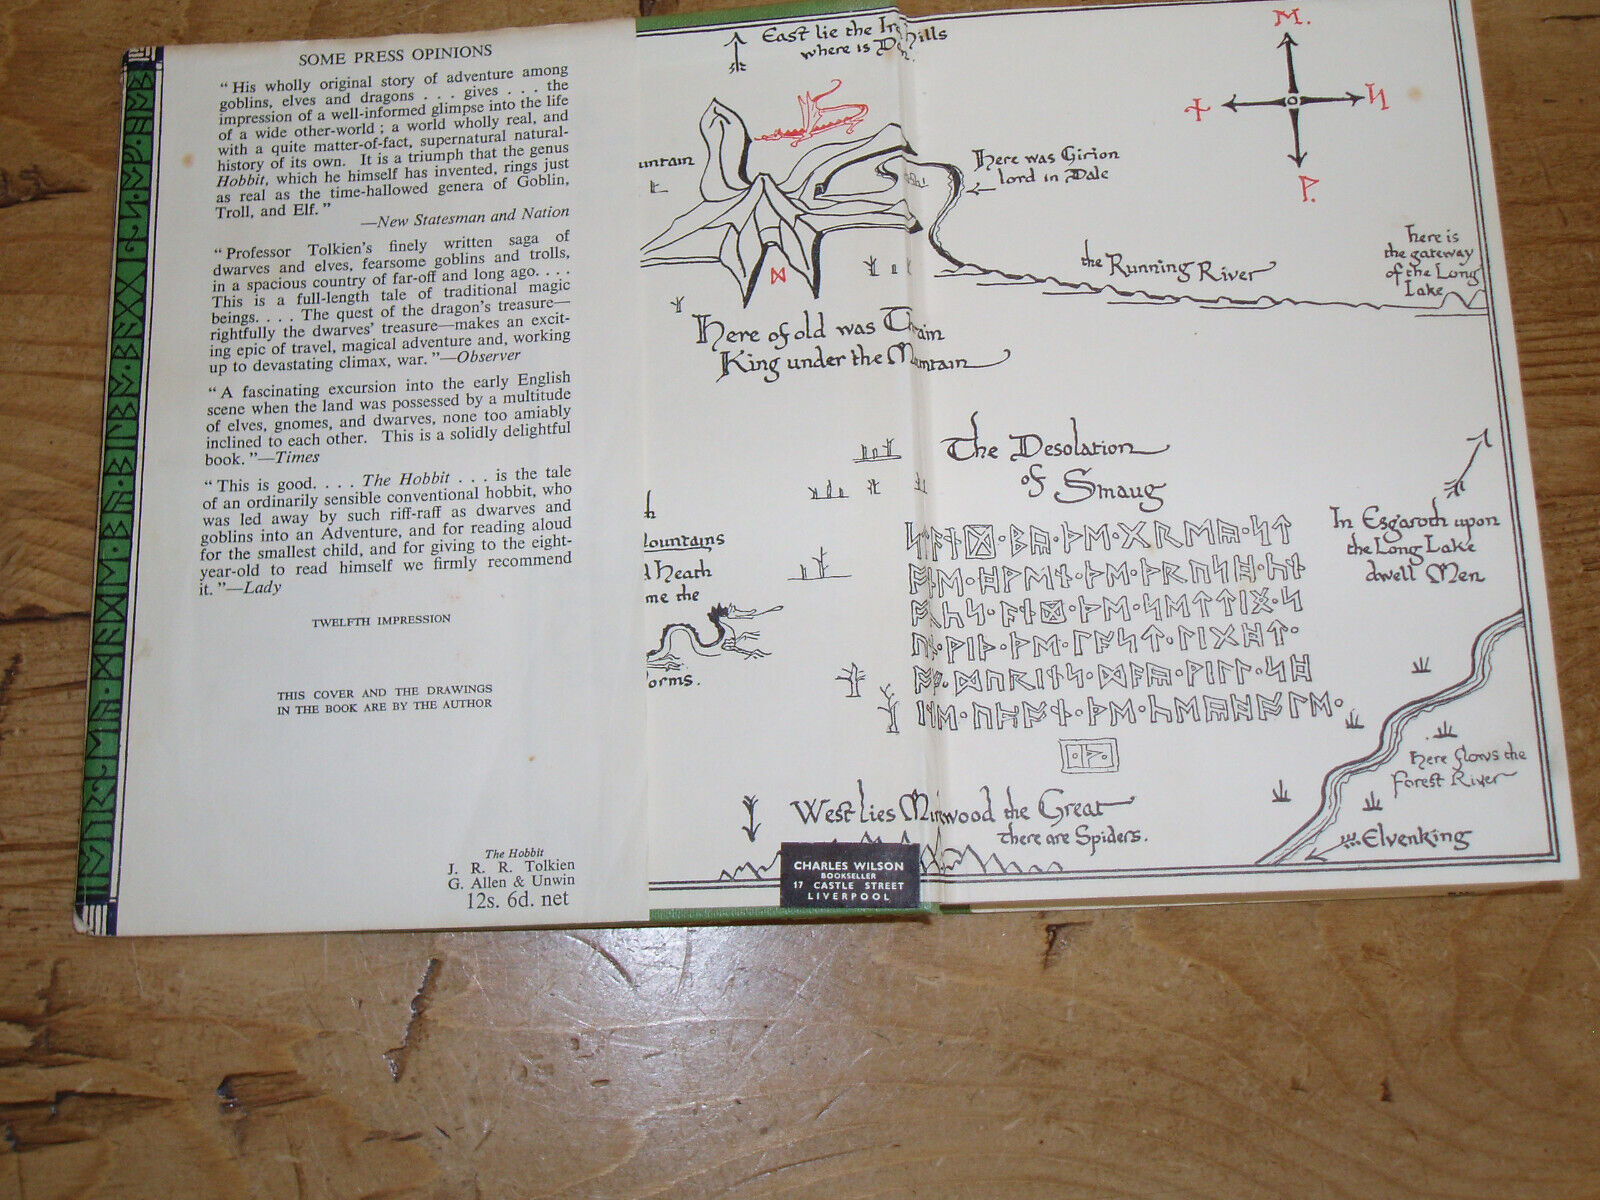 SOME PRESS OPINIONS
“ His wholly original story of adventure among
goblins, elves and dragons . . . gives . . . the
impression of a well-informed glimpse into the life
of a wide other-world ; a world wholly real, and
with a quite matter-of-fact, supernatural natural-
history of its own. It is a triumph that the genus
Hobbit, which he himself has invented, rings just
as real as the time-hallowed genera of Goblin,
Troll, and Elf. ”
—New Statesman and Nation
“ Professor Tolkien’s finely written saga of
dwarves and elves, fearsome goblins and trolls,
in a spacious country of far-off and long ago. . . .
This is a full-length tale of traditional magic
beings. . . . The quest of the dragon’s treasure—
rightfully the dwarves’ treasure—makes an excit-
ing epic of travel, magical adventure and, working
up to devastating climax, war. ”—Observer
“ A fascinating excursion into the early English
scene when the land was possessed by a multitude
of elves, gnomes, and dwarves, none too amiably
inclined to each other. This is a solidly delightful
book. ”—Times
“ This is good. . . . The Hobbit . . . is the tale
of an ordinarily sensible conventional hobbit, who
was led away by such riff-raff as dwarves and
goblins into an Adventure, and for reading aloud
for the smallest child, and for giving to the eight-
year-old to read himself we firmly recommend
it. ”—Lady
TWELFTH IMPRESSION
THIS COVER AND THE DRAWINGS
IN THE BOOK ARE BY THE AUTHOR
The Hobbit
J. R. R. Tolkien
G. Allen & Unwin
12s. 6d. net
East lie the Iron Hills
where is Dain.
ᛖ
ᚾ ᛋ
ᚹ
untain
Here was Girion
lord in Dale
the Running River
Here is
the gateway
of the Long
Lake
ᛞ
Here of old was Thrain
King under the Mountain
The Desolation
of Smaug
ᛋᛏᚪᚾᛞ·ᛒᚣ·ᚦᛖ·ᚷᚱᛖᚣ·ᛋᛏ
ᚩᚾᛖ·ᚻᚹᛖᚾ·ᚦᛖ·ᚦᚱᚢᛋᚻ·ᚳᚾ
ᚩᚳᛋ·ᚪᚾᛞ·ᚦᛖ·ᛋᛖᛏᛏᛁᛝ·ᛋ
ᚢᚾ·ᚹᛁᚦ·ᚦᛖ·ᛚᚪᛋᛏ·ᛚᛁᚷᚻᛏ·
ᚩᚠ·ᛞᚢᚱᛁᚾᛋ·ᛞᚪᚣ·ᚹᛁᛚᛚ·ᛋᚻ
ᛁᚾᛖ·ᚢᛈᚩᚾ·ᚦᛖ·ᚳᛖᚣᚻᚩᛚᛖ·
·ᚦ·
In Esgaroth upon
the Long Lake
dwell Men
h
Mountains
d Heath
me the
orms.
Here flows the
Forest River
Elvenking
West lies Mirkwood the Great
there are Spiders.
CHARLES WILSON
BOOKSELLER
17 CASTLE STREET
LIVERPOOL